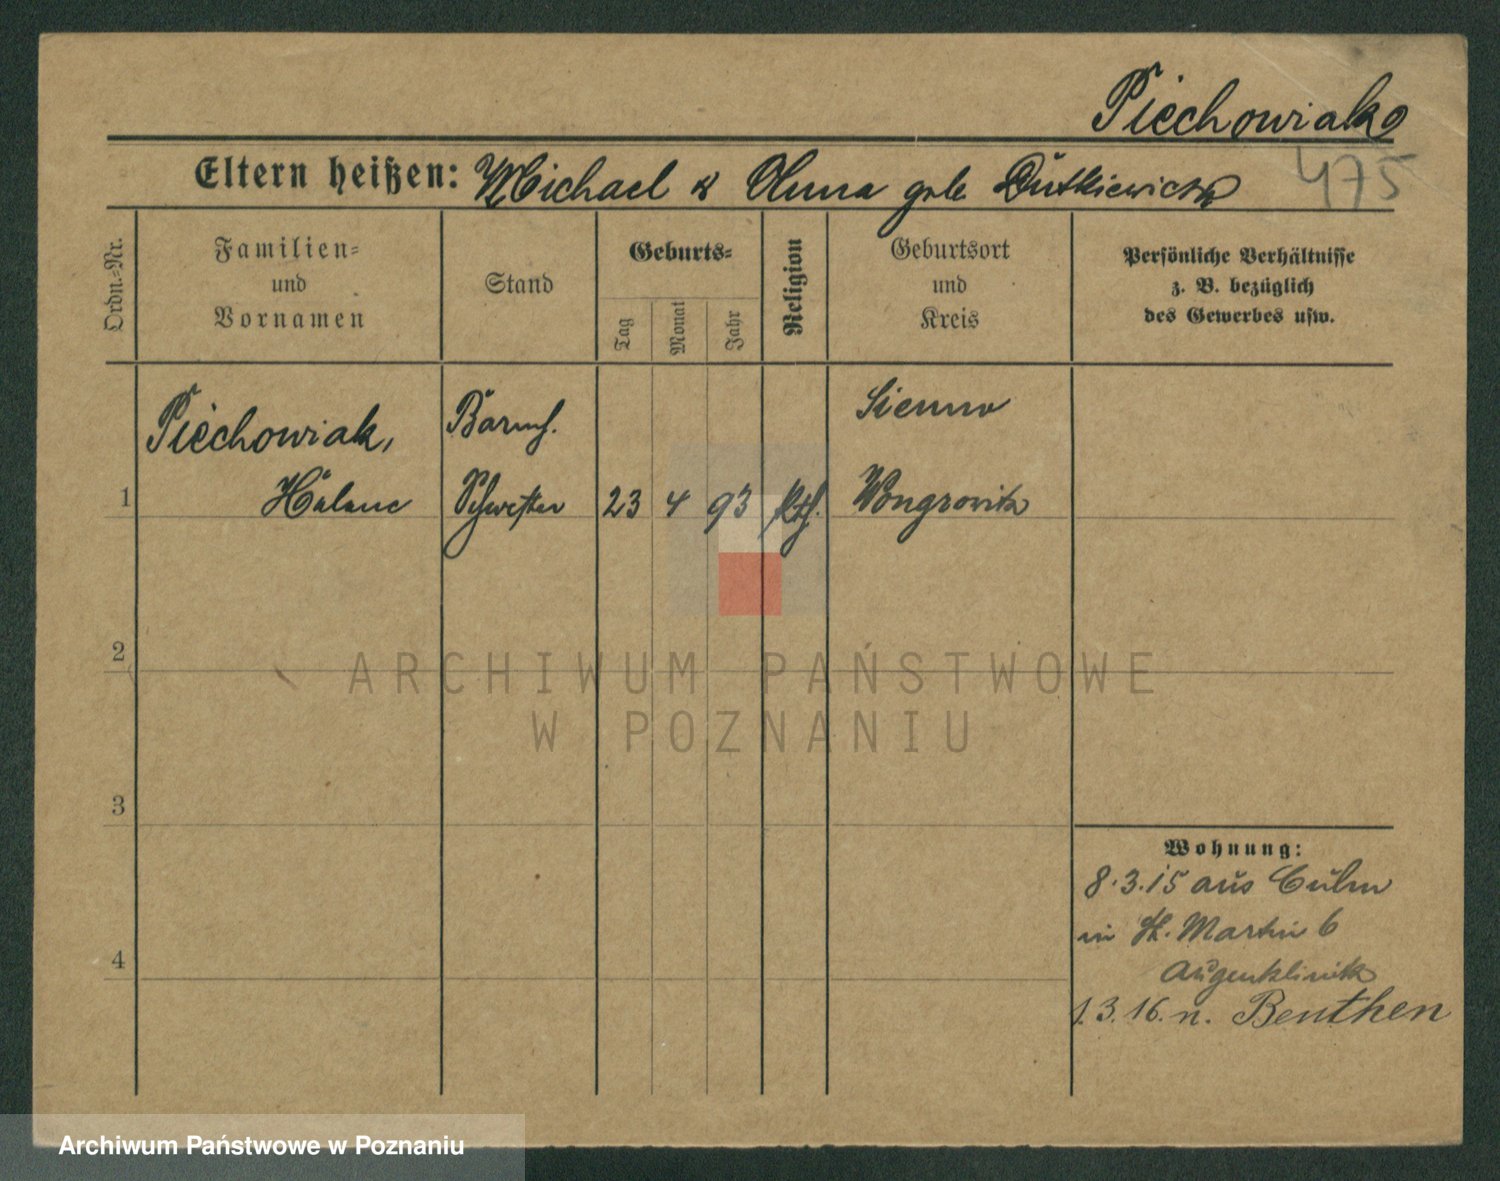 Piechowiak
Eltern heißen: Michael & Anna geb Dutkiewicz
475
Ordn.=Nr.
Familien=
und
Vornamen
Stand
Geburts=
Tag
Monat
Jahr
Religion
Geburtsort
und
Kreis
Persönliche Verhältnisse
z. B. bezüglich
des Gewerbes usw.
Piechowiak, Barmh. Sienno
1 Helene Schwester 23 4 93 kth. Wongrowitz
2
3
4
Wohnung:
8.3.15 aus Culm
in St. Martin 6
Augenklinik
1.3.16. n. Beuthen
ARCHIWUM PAŃSTWOWE
W POZNANIU
Archiwum Państwowe w Poznaniu